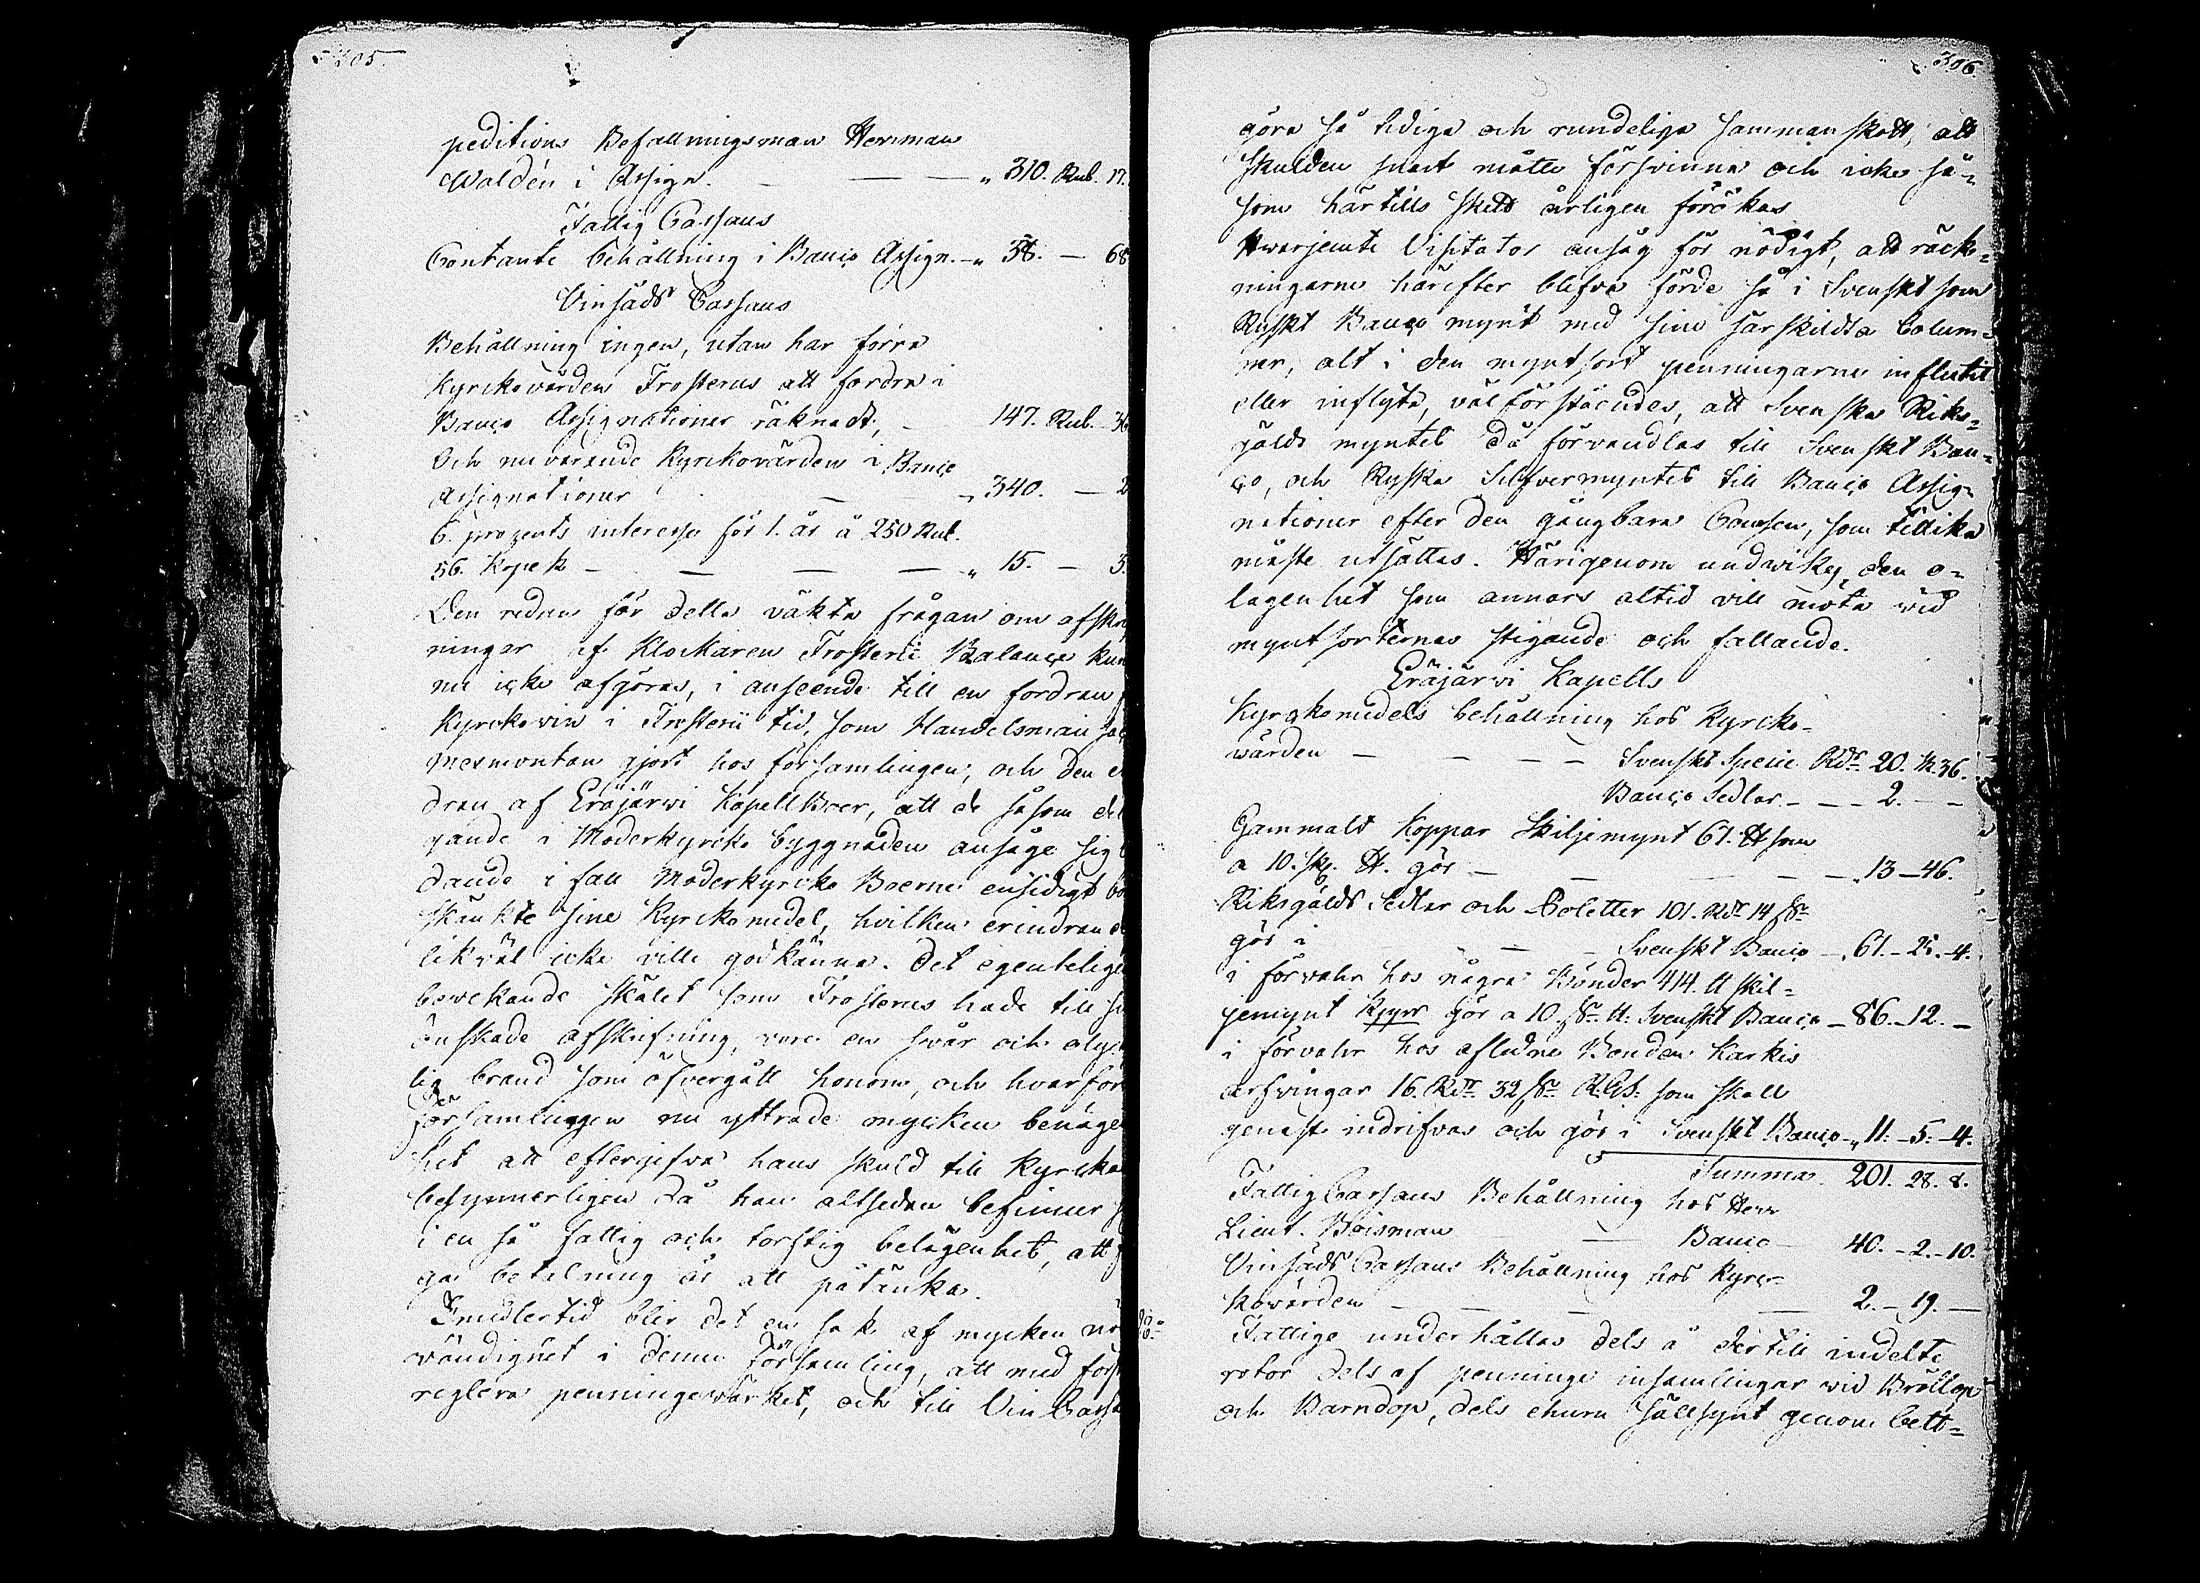 305.
peditions Befallningsman Herrman
Waldén i Assign. — — — „ 310. Rub. 17.
Fattig Cassans
Contante behållning i Banco Assign. — „ 38. — 68
Vinsäds Cassans
Behållning ingen, utan har förra
Kyrckovärden Frosterus att fordra i
Banco Assignationer räknadt, — 147. Rub. 36
Och nuvarande Kyrckovärden i Banco
Assignationer — „ 340. — 2
6. prozents interesse för 1. år å 250 Rub.
56. Kopek — — — — „ 15. — 3.
Den redan för detta väkta frågan om afskrif
ningar af Klockaren Frosterii Balance kun
nu icke afgöras, i anseende till en fordran
Kyrckovin i Frosterii tid, som Handelsman
Mesmontan gjort hos församlingen; och den
dran af Eräjärwi KapellBoer, att de såsom del
gande i Moderkyrcko byggnaden ansåge sig
dande i fall Moderkyrcko Boerne ensidigt
skänkte sine Kyrckomedel, hvilken erindran
likväl icke ville godkänna. Det egenteliga
bevekande skälet som Frosterus hade till
önskade afskrifning, vore en svår och olyck
lig brand som öfvergått honom, och hvarför
Församlingen nu yttrade mycken benägen
het att eftergifva hans skuld till Kyrckan
besynnerligen då han altsedan befinner
i en så fattig och torftig belägenhet, att
ga betalning är att påtänka.
Imidlertid blir det en sak af mycken nöd
vändighet i denna församling, att med först
reglera penningeverket, och till Vin Cassa
306.
göra så tidiga och rundeliga sammanskott, att
skulden snart måtte försvinna och icke så-
som härtills skedt årligen förökas
Hwarjemte Visitator ansåg för nödigt, att räck-
ningarna härefter blefve förde så i Svenskt som
Ryskt Banco mynt med sine särskildta Colum-
ner, alt i den myntsort penningarne influtit
eller inflyta, väl förståendes, att Svenska Riks-
gälds myntet då förvandlas till Svenskt Ban-
co, och Ryska Silfvermyntet till Banco Assig-
nationer efter den gångbara Coursen, som tillika
måste utsättas. Härigenom undwikes den o-
lägenhet som annars altid vill möta vid
myntsorternas stigande och fallande.
Eräjärwi Kapells
Kyrckomedels behållning hos Kyrcko-
wärden — — — — Svenskt Specie Rdr 20. 36.
Banco Sedlar — — 2. — —
Gammalt Koppar Skiljemynt 61. ℔ som
a 10. sk. ℔. gör — — — — „ 13 — 46.
Riksgälds Sedlar och Poletter 101. Rdr 14 s.
gör i — — Svenskt Banco — „ 61. — 25. — 4.
i förvahr hos några Bönder 414. ℔ skil-
jemynt Kppr gör a 10. s. ℔. Svenskt Banco — 86. — 12. —
i förvahr hos afledne Bonden Karkis
arfvingar 16. Rdr. 32 s. R.Gs. som skall
genast indrifvas och gör i Svenskt Banco — „ 11. — 5. — 4.
Summa. 201. 28. 8.
Fattig Cassans Behållning hos Herr
Lieut. Boisman — Banco — 40. — 2. — 10.
Vinsäds Cassans Behållning hos Kyrc-
kovärden — — — — 2. — 19. —
Fattige underhållas dels å dertill indelte
rotor dels af penninge insamlingar vid Bröllop
och Barndop, dels ehuru sällsynt genom bett-